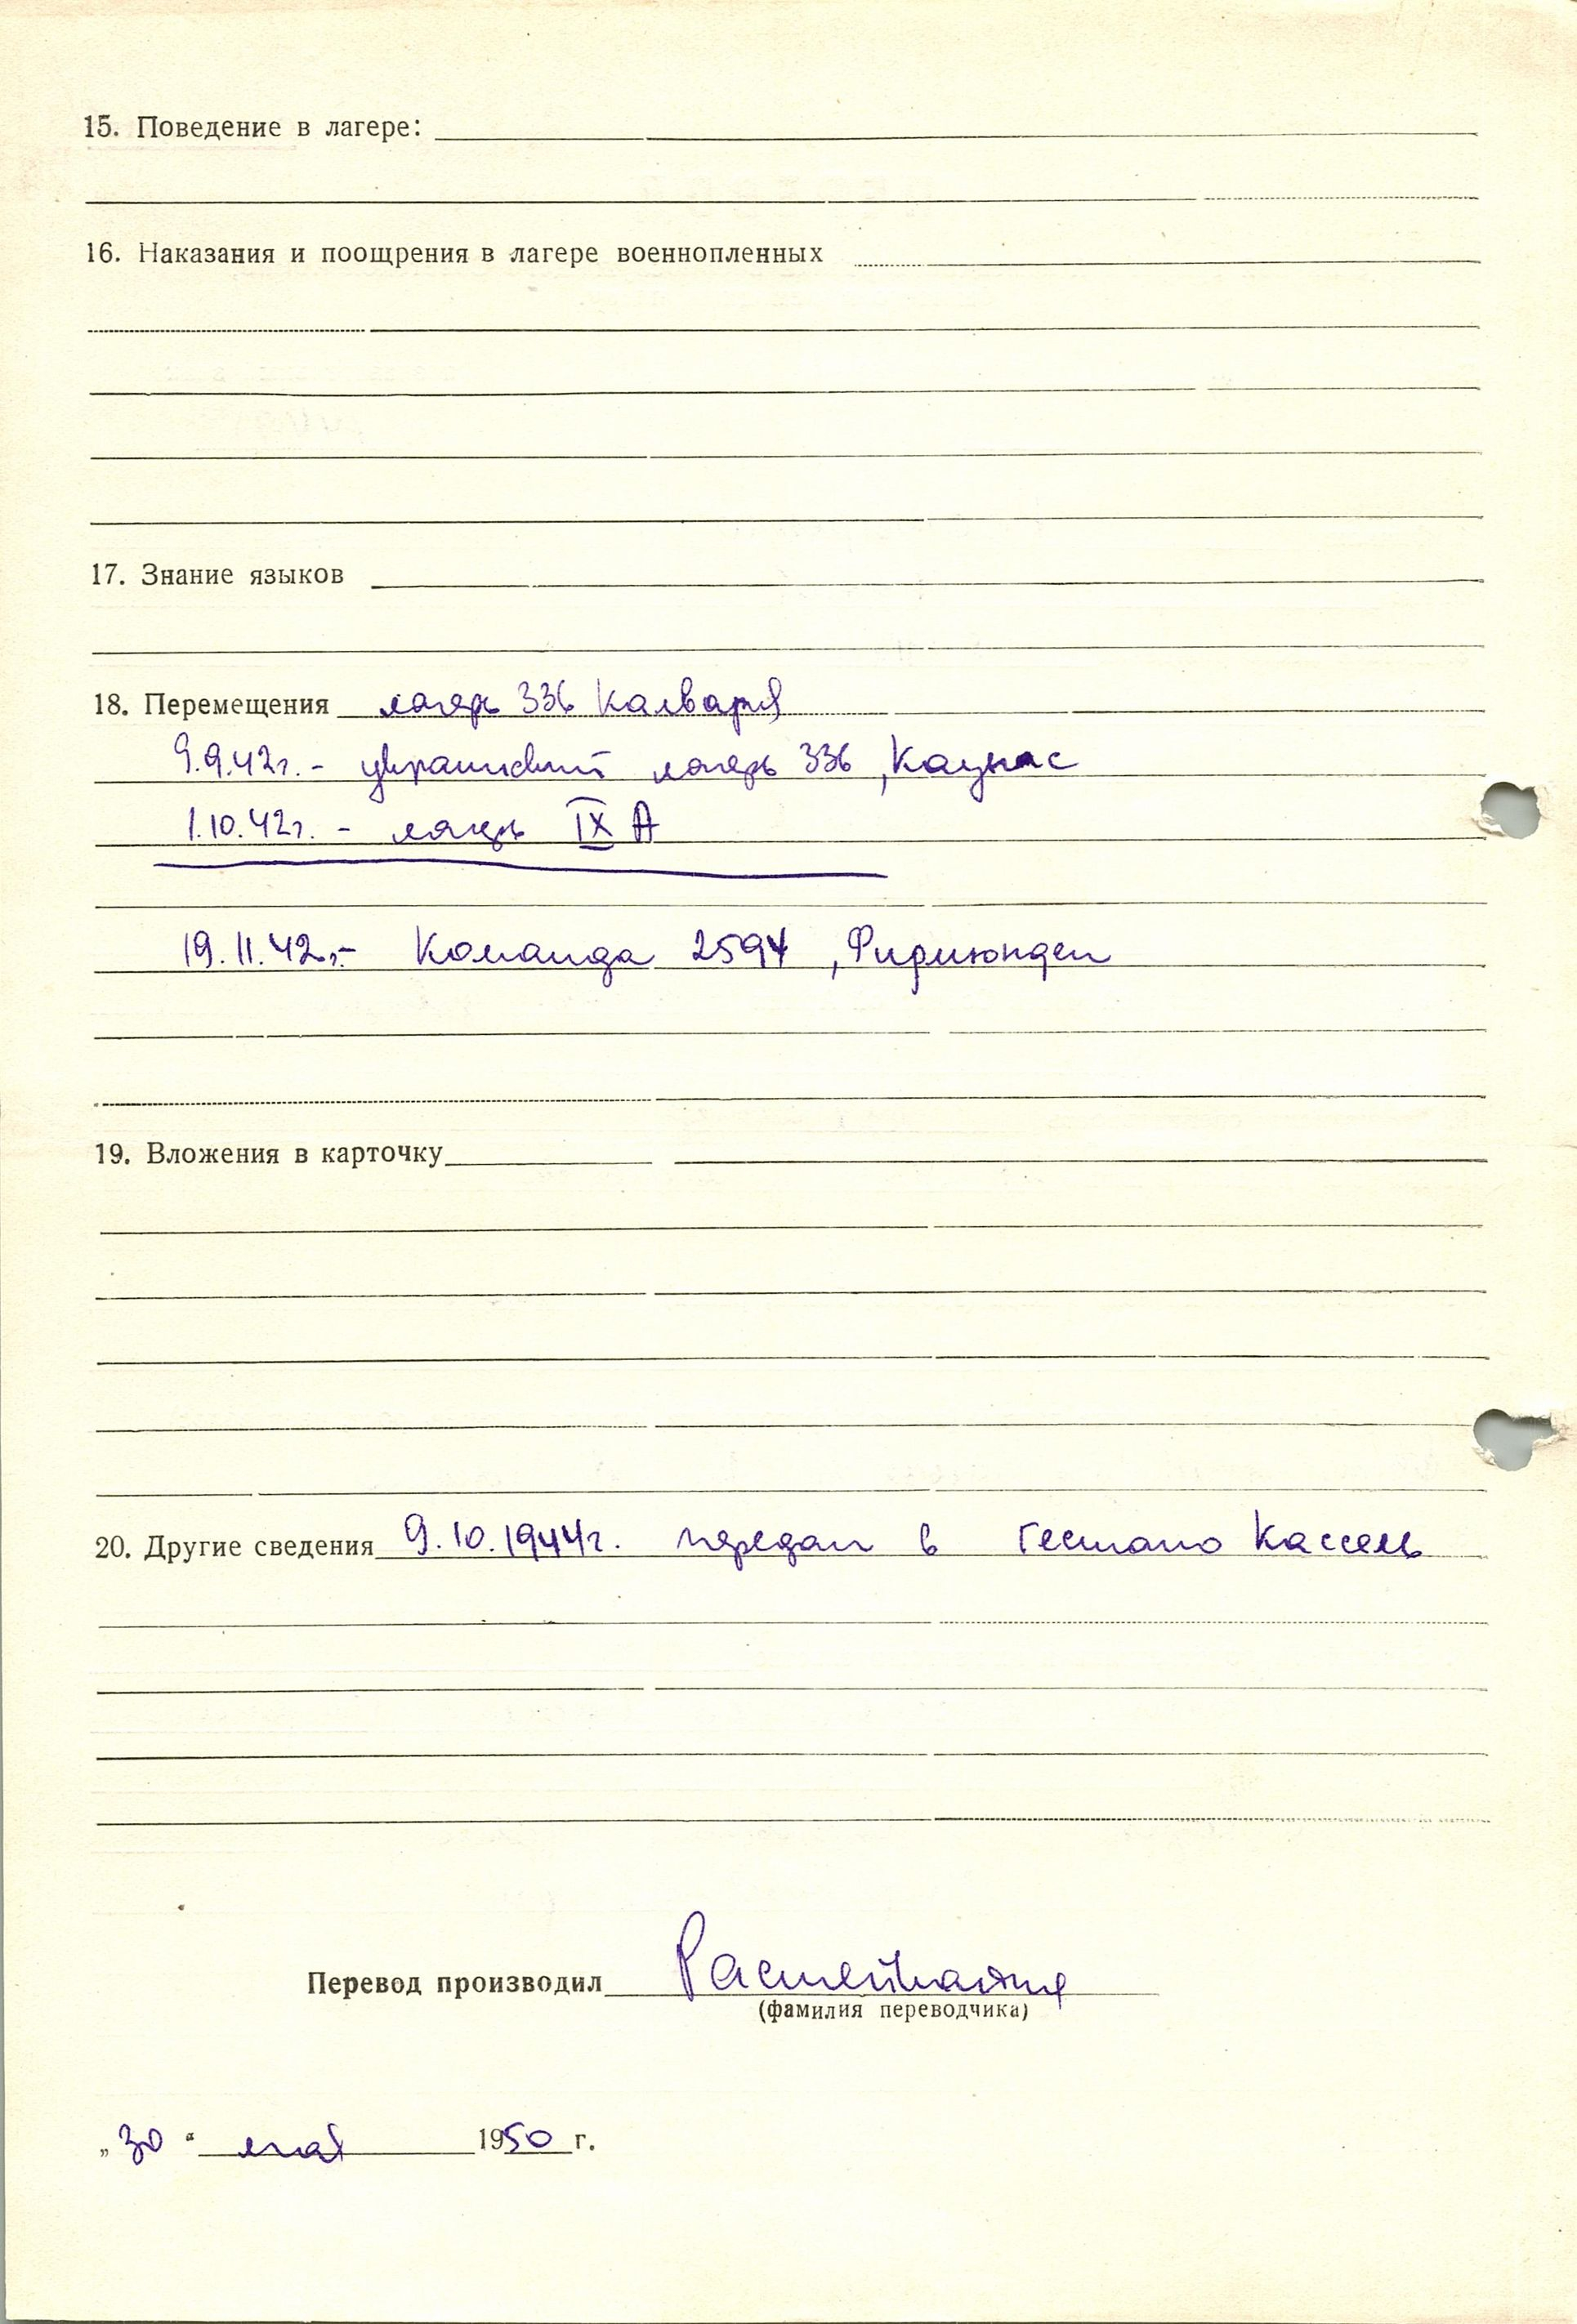 15. Поведение в лагере:
16. Наказания и поощрения в лагере военнопленных
17. Знание языков
18. Перемещения лагерь 336 Кальвария
9.9.42г. - украинский лагерь 336, Каунас
1.10.42г. - лагерь IX A
19.11.42г. - Команда 2594, Фирмюнден
19. Вложения в карточку
20. Другие сведения 9.10.1944г. передан в гестапо Кассель
Перевод производил
(фамилия переводчика)
„30“ мая 1950 г.